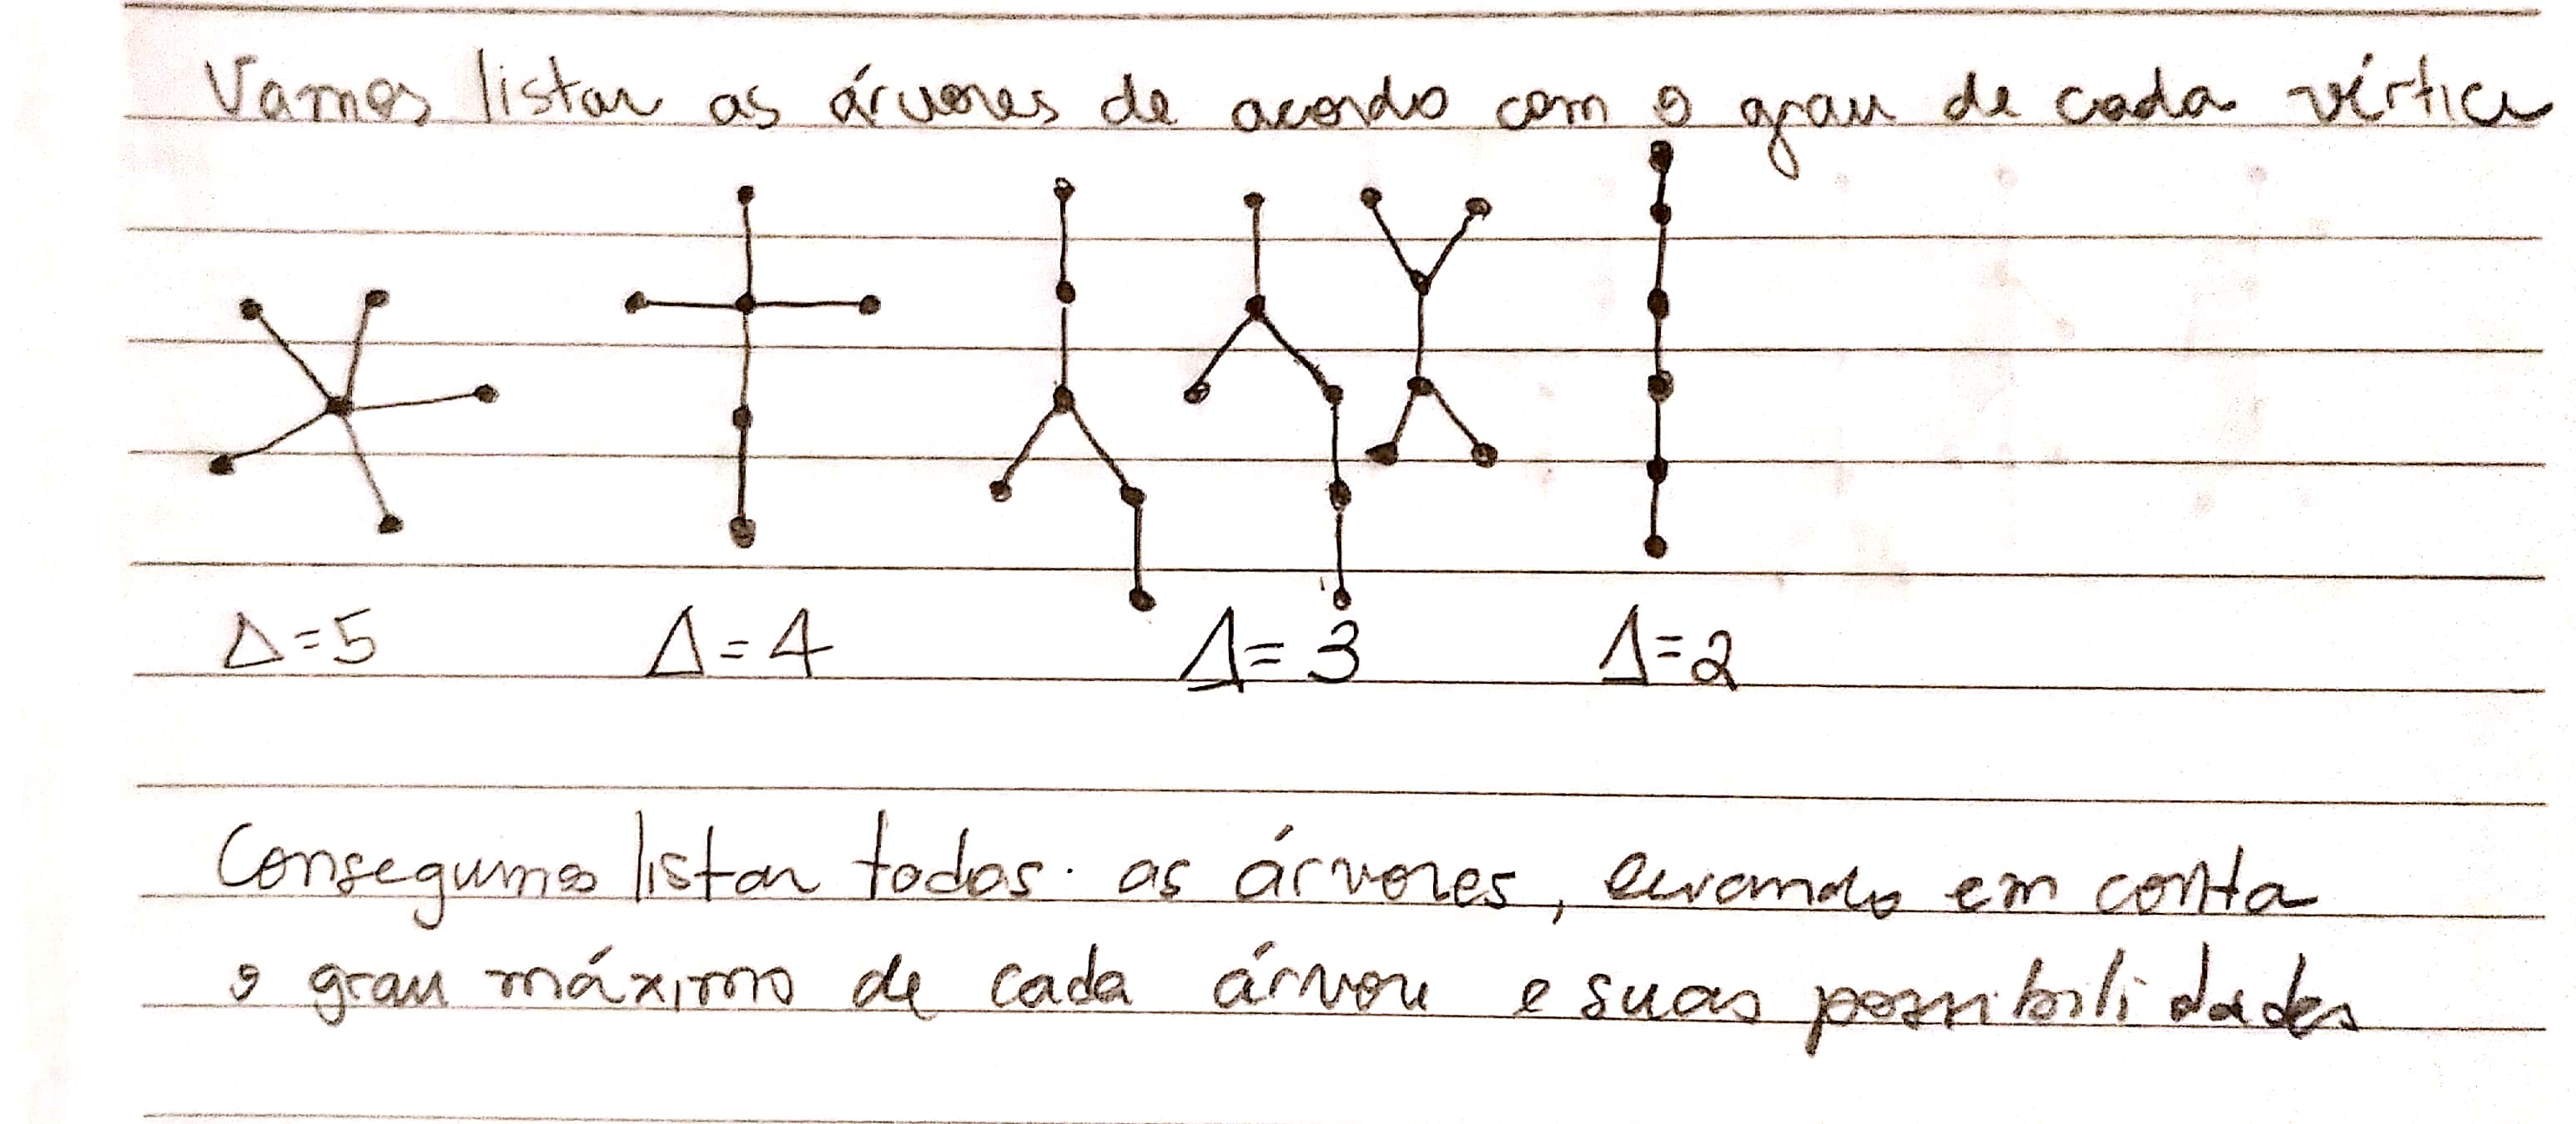 Vamos listar as árvores de acordo com o grau de cada vértice
Δ=5 Δ=4 Δ=3 Δ=2
Conseguimos listar todas as árvores, levando em conta
o grau máximo de cada árvore e suas possibilidades